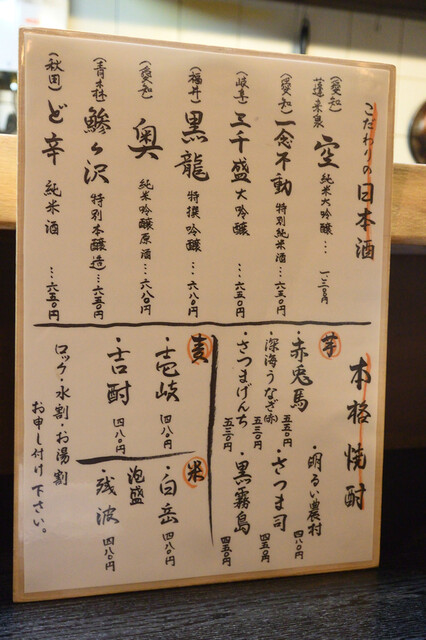 こだわりの日本酒
(愛知)
蓬来泉 空 純米大吟醸… 一、二三〇円
(愛知) 一念不動 特別純米酒…六三〇円
(岐阜) 三千盛 大吟醸 …六三〇円
(福井) 黒龍 特撰 吟醸…六八〇円
(愛知) 奥 純米吟醸原酒…六八〇円
(青森) 鯵ヶ沢 特別本醸造…六五〇円
(秋田) ど辛 純米酒 …六五〇円
本格焼酎
芋
・赤兎馬 五五〇円
・深海うなぎ(赤) 五三〇円
・さつまげんち 五三〇円
・明るい農村 四八〇円
・さつま司 四五〇円
・黒霧島 四五〇円
麦
・壱岐 四八〇円
・吉酎 四八〇円
米
・白岳 四八〇円
泡盛
・残波 四八〇円
ロック・水割・お湯割
お申し付け下さい。